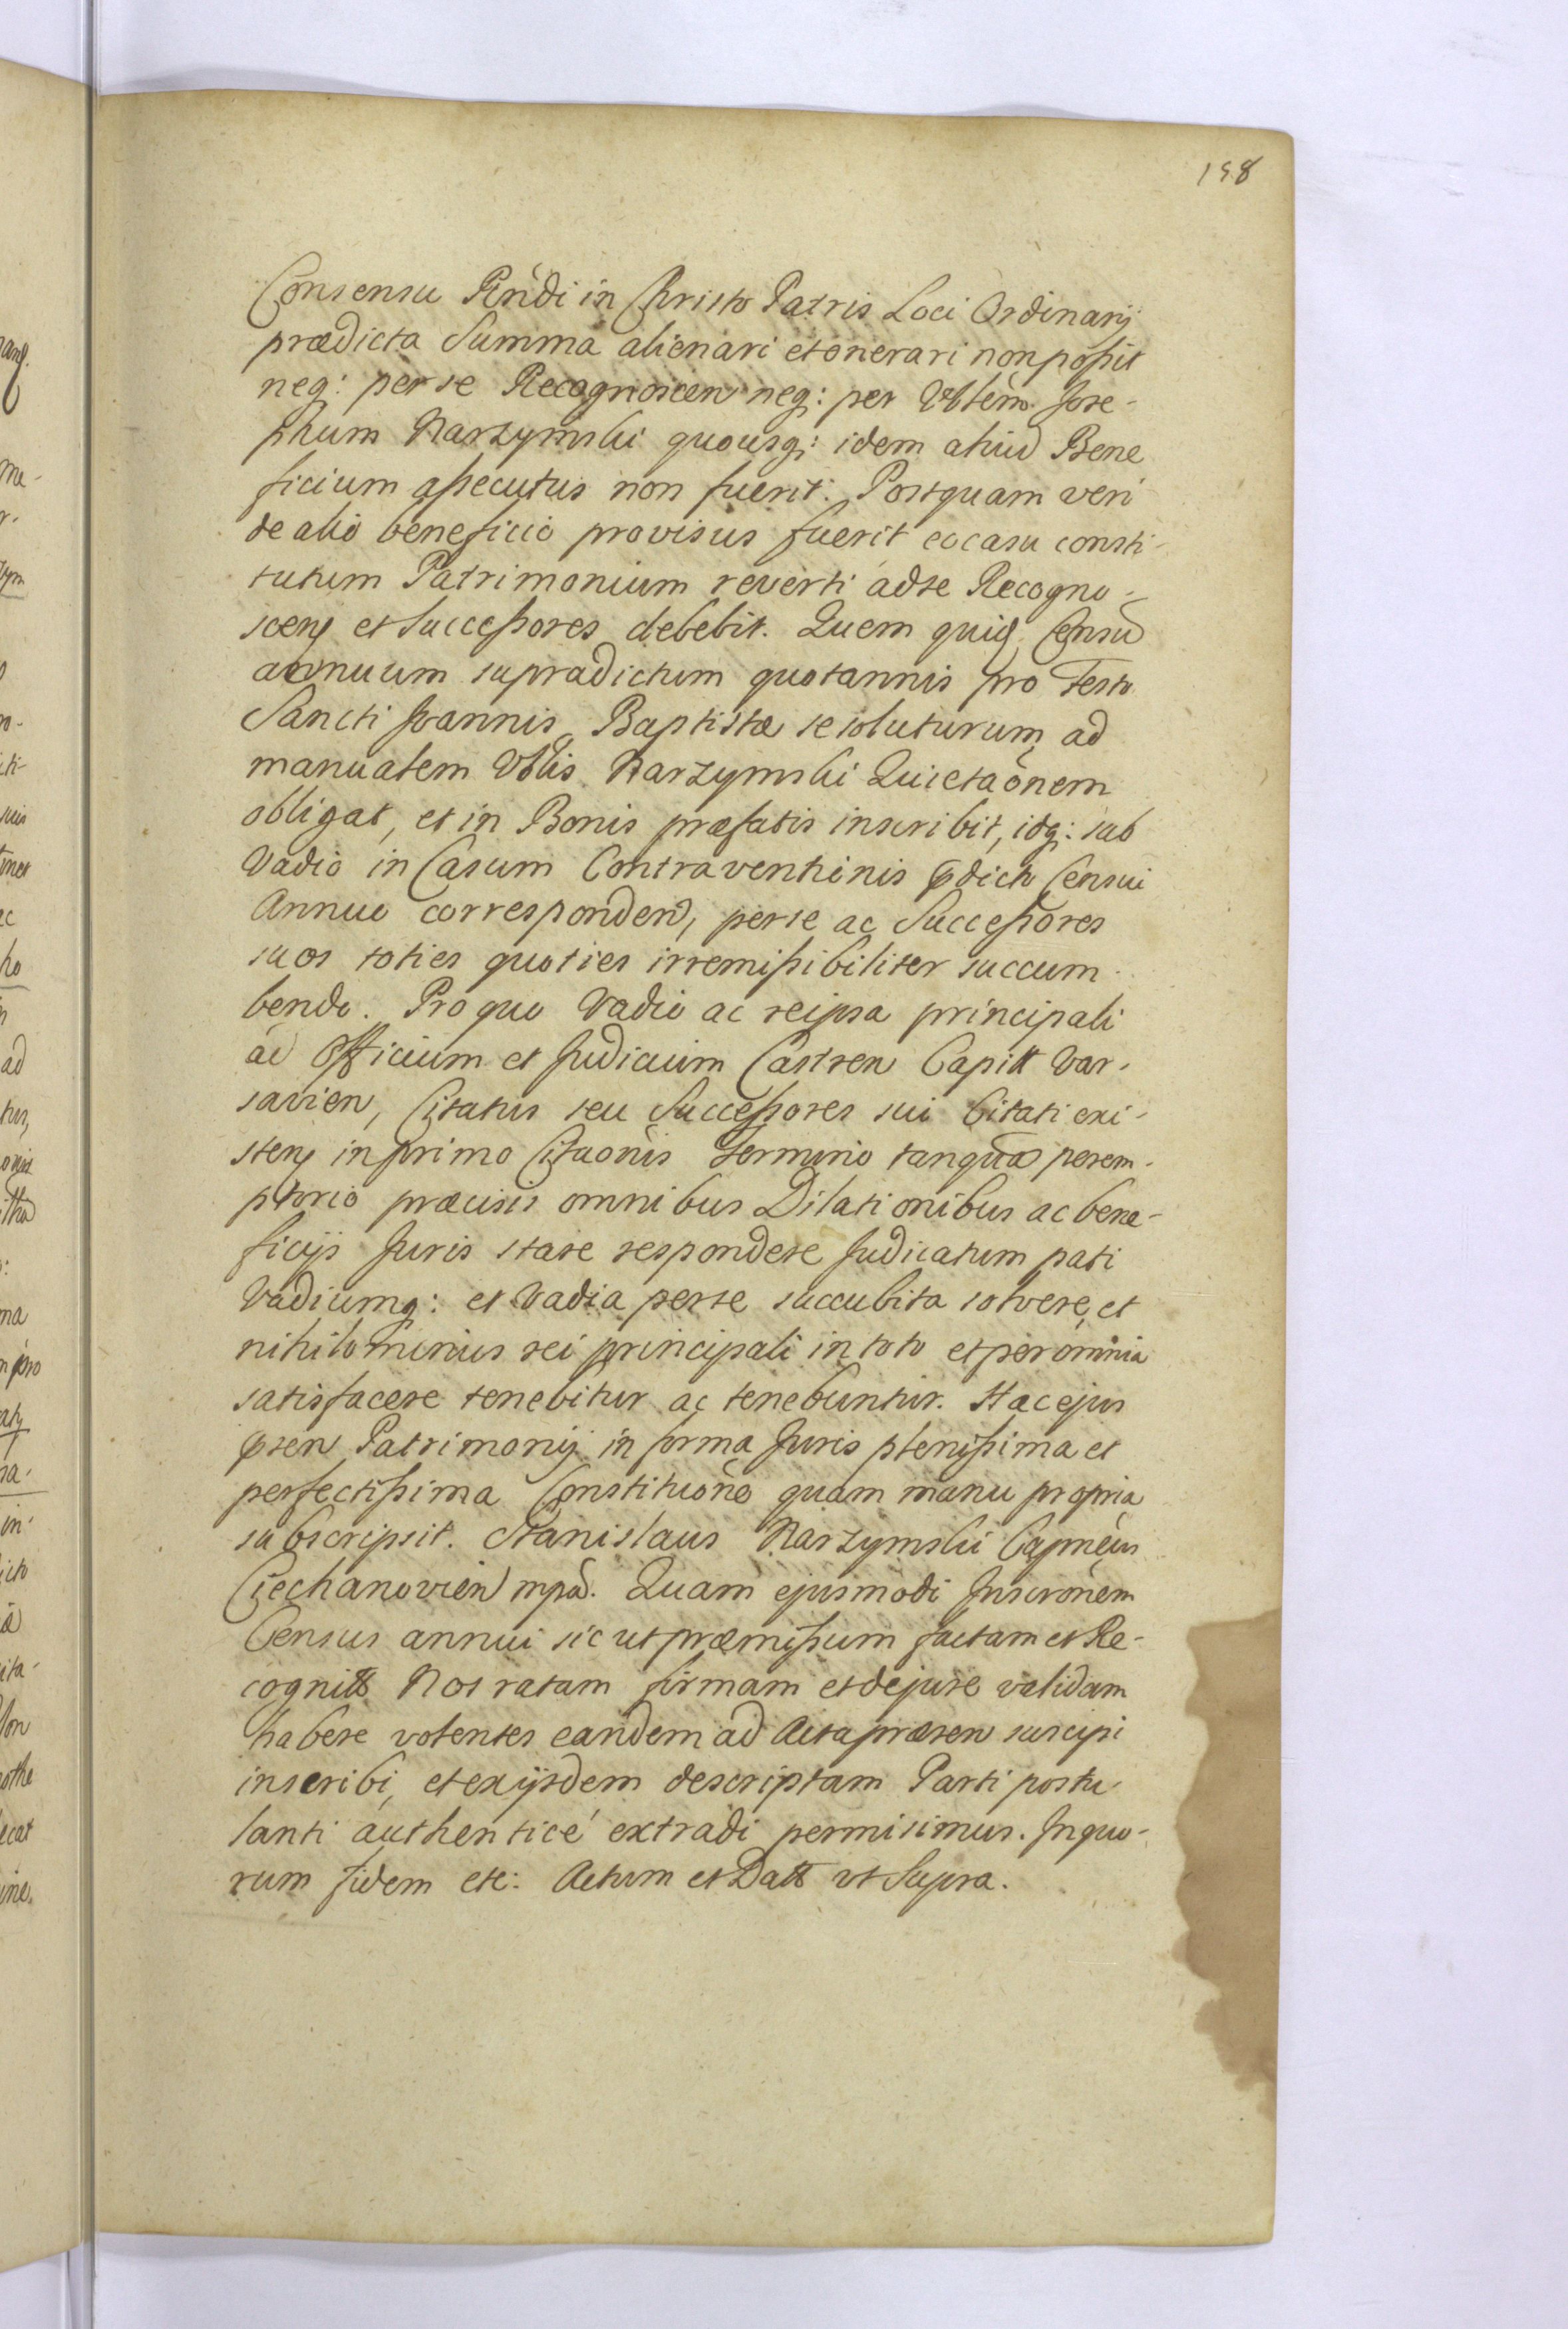 198
Consensu Rñdi in Christo Patris Loci Ordinarij
prædicta Summa alienari et onerari non possit
neq: per se Recognoscen neq: per Vblem Jose-
phum Narzymski quousq: idem aliud Bene
ficium assecutus non fuerit. Postquam veri
de alio beneficio provisus fuerit eo casu consti-
tutum Patrimonium reverti ad se Recogno-
scens et Successores debebit. Quem quid Censu
annuum supradictum quotannis pro Festo
Sancti Joannis Baptistæ se soluturum ad
manualem Vblis Narzymski Quietaõnem
obligat, et in Bonis præfatis inscribit, idq: sub
Vadio in Casum Contraventinis pdicto Censui
Annuo corresponden, per se ac Successores
suos toties quoties irremissibiliter succum-
bendo. Pro quo Vadio ac reipsa principali
ad Officium et Judicium Castren Capitt Var-
savien, Citatus seu Successores sui Citati exi-
stens in primo Citaõnis Termino tanquã perem-
ptorio præcisis omnibus Dilationibus ac bene-
ficijs Juris stare respondere Judicatum pati
Vadiumq: et Vadia per se succubita solvere, et
nihilominus rei principali in toto et per omnia
satisfacere tenebitur ac tenebuntur. Hac ejus
pren Patrimonij in forma Juris plenissima et
perfectissima Constitutione quam manu propria
subscripsit. Stanislaus Narzymski Capneus
Ciechanovien mpa. Quam ejusmodi Inscronem
Census annui sic ut præmissum factam et Re-
cognitt Nos ratam firmam et de jure validam
habere volentes eandem ad Acta præsen suscipi
inscribi, et ex ijsdem descriptam Parti postu-
lanti authenticé extradi permisimus. In quo-
rum fidem etc: Actum et Datt ut Supra.